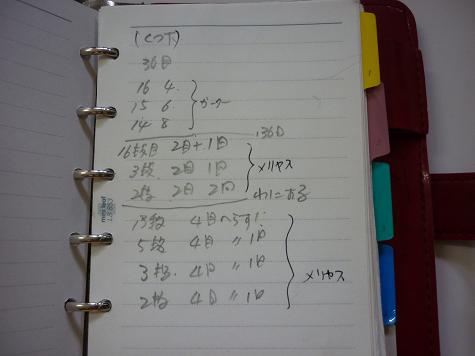 (くつ下)
36目
16 4
15 6
14 8
ガーター
36目
16段目 2目+1回
3段 2目 1回
2段 2目 2回
メリヤス
わにする
13段 4目へらす
5段 4目 〃 1回
3段 4目 〃 1回
2段 4目 〃 1回
メリヤス